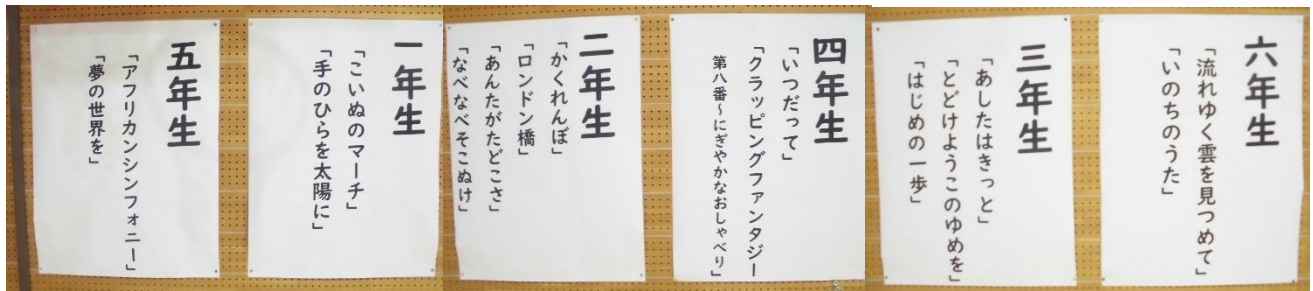 五年生
「アフリカンシンフォニー」
「夢の世界を」
一年生
「こいぬのマーチ」
「手のひらを太陽に」
二年生
「かくれんぼ」
「ロンドン橋」
「あんたがたどこさ」
「なべなべそこぬけ」
四年生
「いつだって」
「クラッピングファンタジー
第八番～にぎやかなおしゃべり」
三年生
「あしたはきっと」
「とどけようこのゆめを」
「はじめの一歩」
六年生
「流れゆく雲を見つめて」
「いのちのうた」